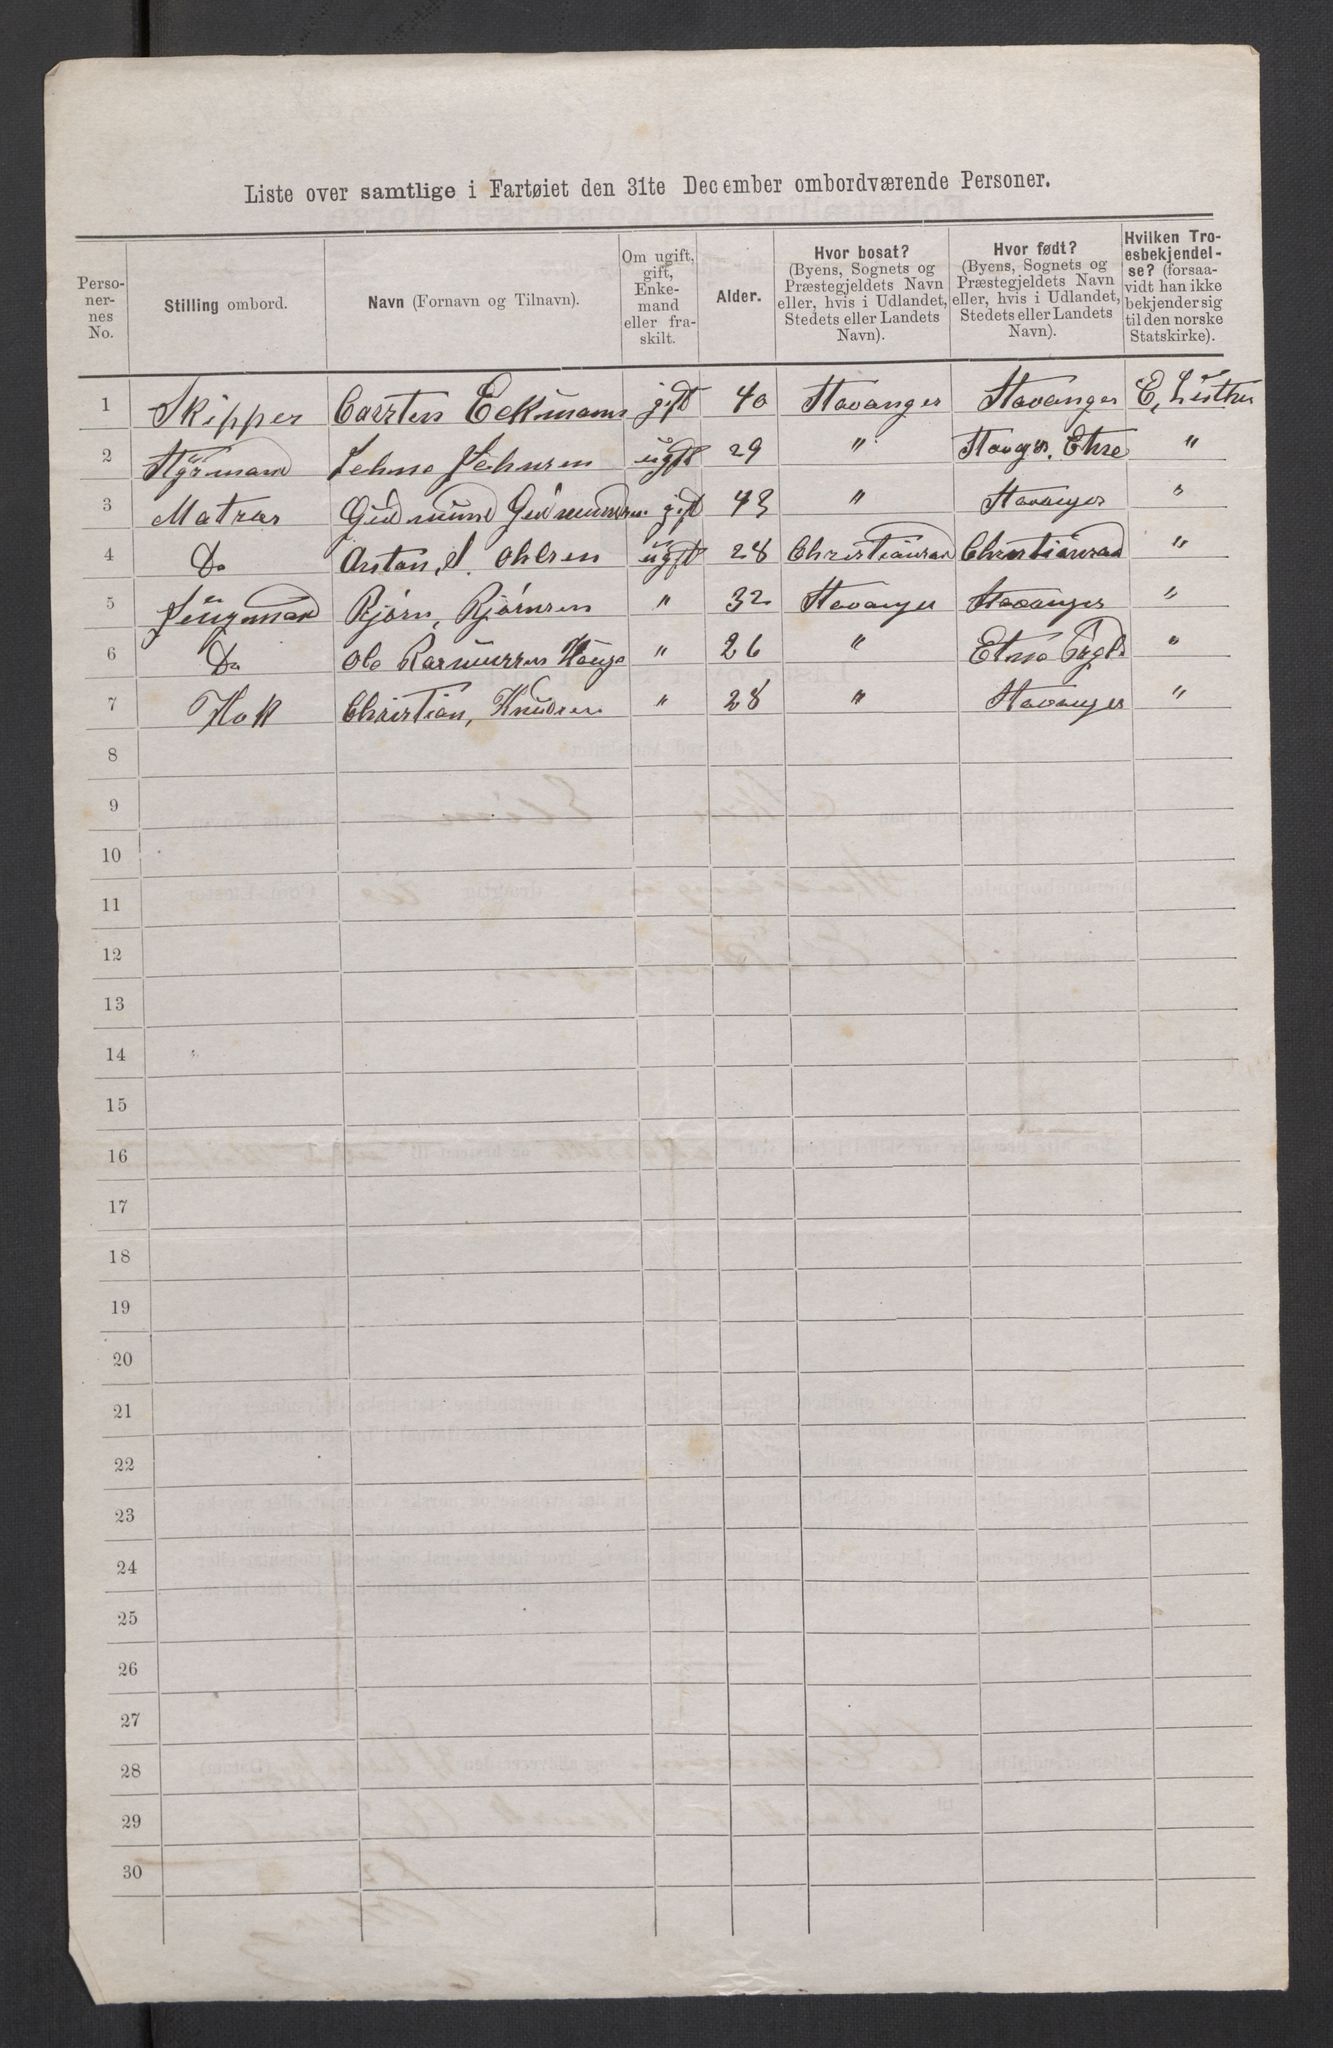 Liste over samtlige i Fartøiet den 31te December ombordværende Personer.
Perso-
ner-
nes
No.
Stilling ombord.
Navn (Fornavn og Tilnavn).
Om ugift,
gift,
Enke-
mand
eller fra-
skilt.
Alder.
Hvor bosat?
(Byens, Sognets og
Præstegjeldets Navn
eller, hvis i Udlandet,
Stedets eller Landets
Navn).
Hvor født?
(Byens, Sognets og
Præstegjeldets Navn
eller, hvis i Udlandet,
Stedets eller Landets
Navn).
Hvilken Tro-
esbekjendel-
se? (forsaa-
vidt han ikke
bekjender sig
til den norske
Statskirke).
1 Skipper Carsten Eckmann gift 40 Stavanger Stavanger E, Luther
2 Styrmand Johnsen ugift 29 " "
3 Matros Gudmund Gudmundsen gift 43 " Stavanger "
4 Do Anton, S. Ohlsen ugift 28 Christiansad Christiansad "
5 Jungmand Bjørn, Bjørnsen " 32 Stavanger Stavanger "
6 Do Ole Rasmussen Hauge " 26 " Etne "
7 Kok Christian, Knudsen " 28 " Stavanger "
8
9
10
11
12
13
14
15
16
17
18
19
20
21
22
23
24
25
26
27
28
29
30